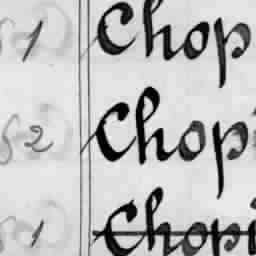 81 Chop
82 Chopi
81 Chopi